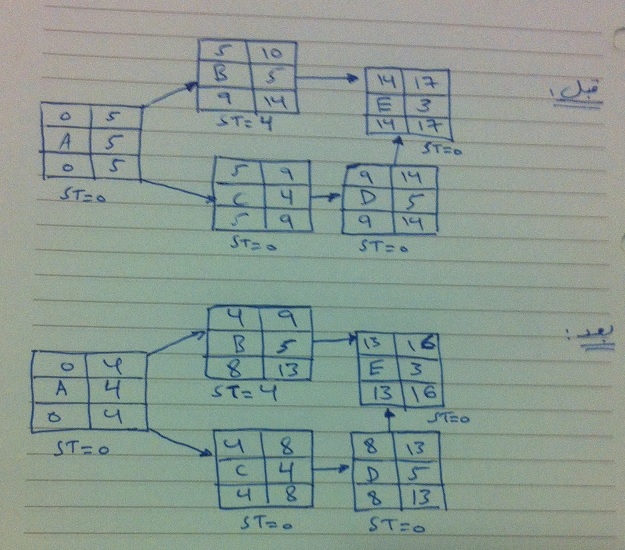 قبل:
5 10
B 5
9 14
ST=4
14 17
E 3
14 17
ST=0
0 5
A 5
0 5
ST=0
5 9
C 4
5 9
ST=0
9 14
D 5
9 14
ST=0
بعد:
4 9
B 5
8 13
ST=4
13 16
E 3
13 16
ST=0
0 4
A 4
0 4
ST=0
4 8
C 4
4 8
ST=0
8 13
D 5
8 13
ST=0